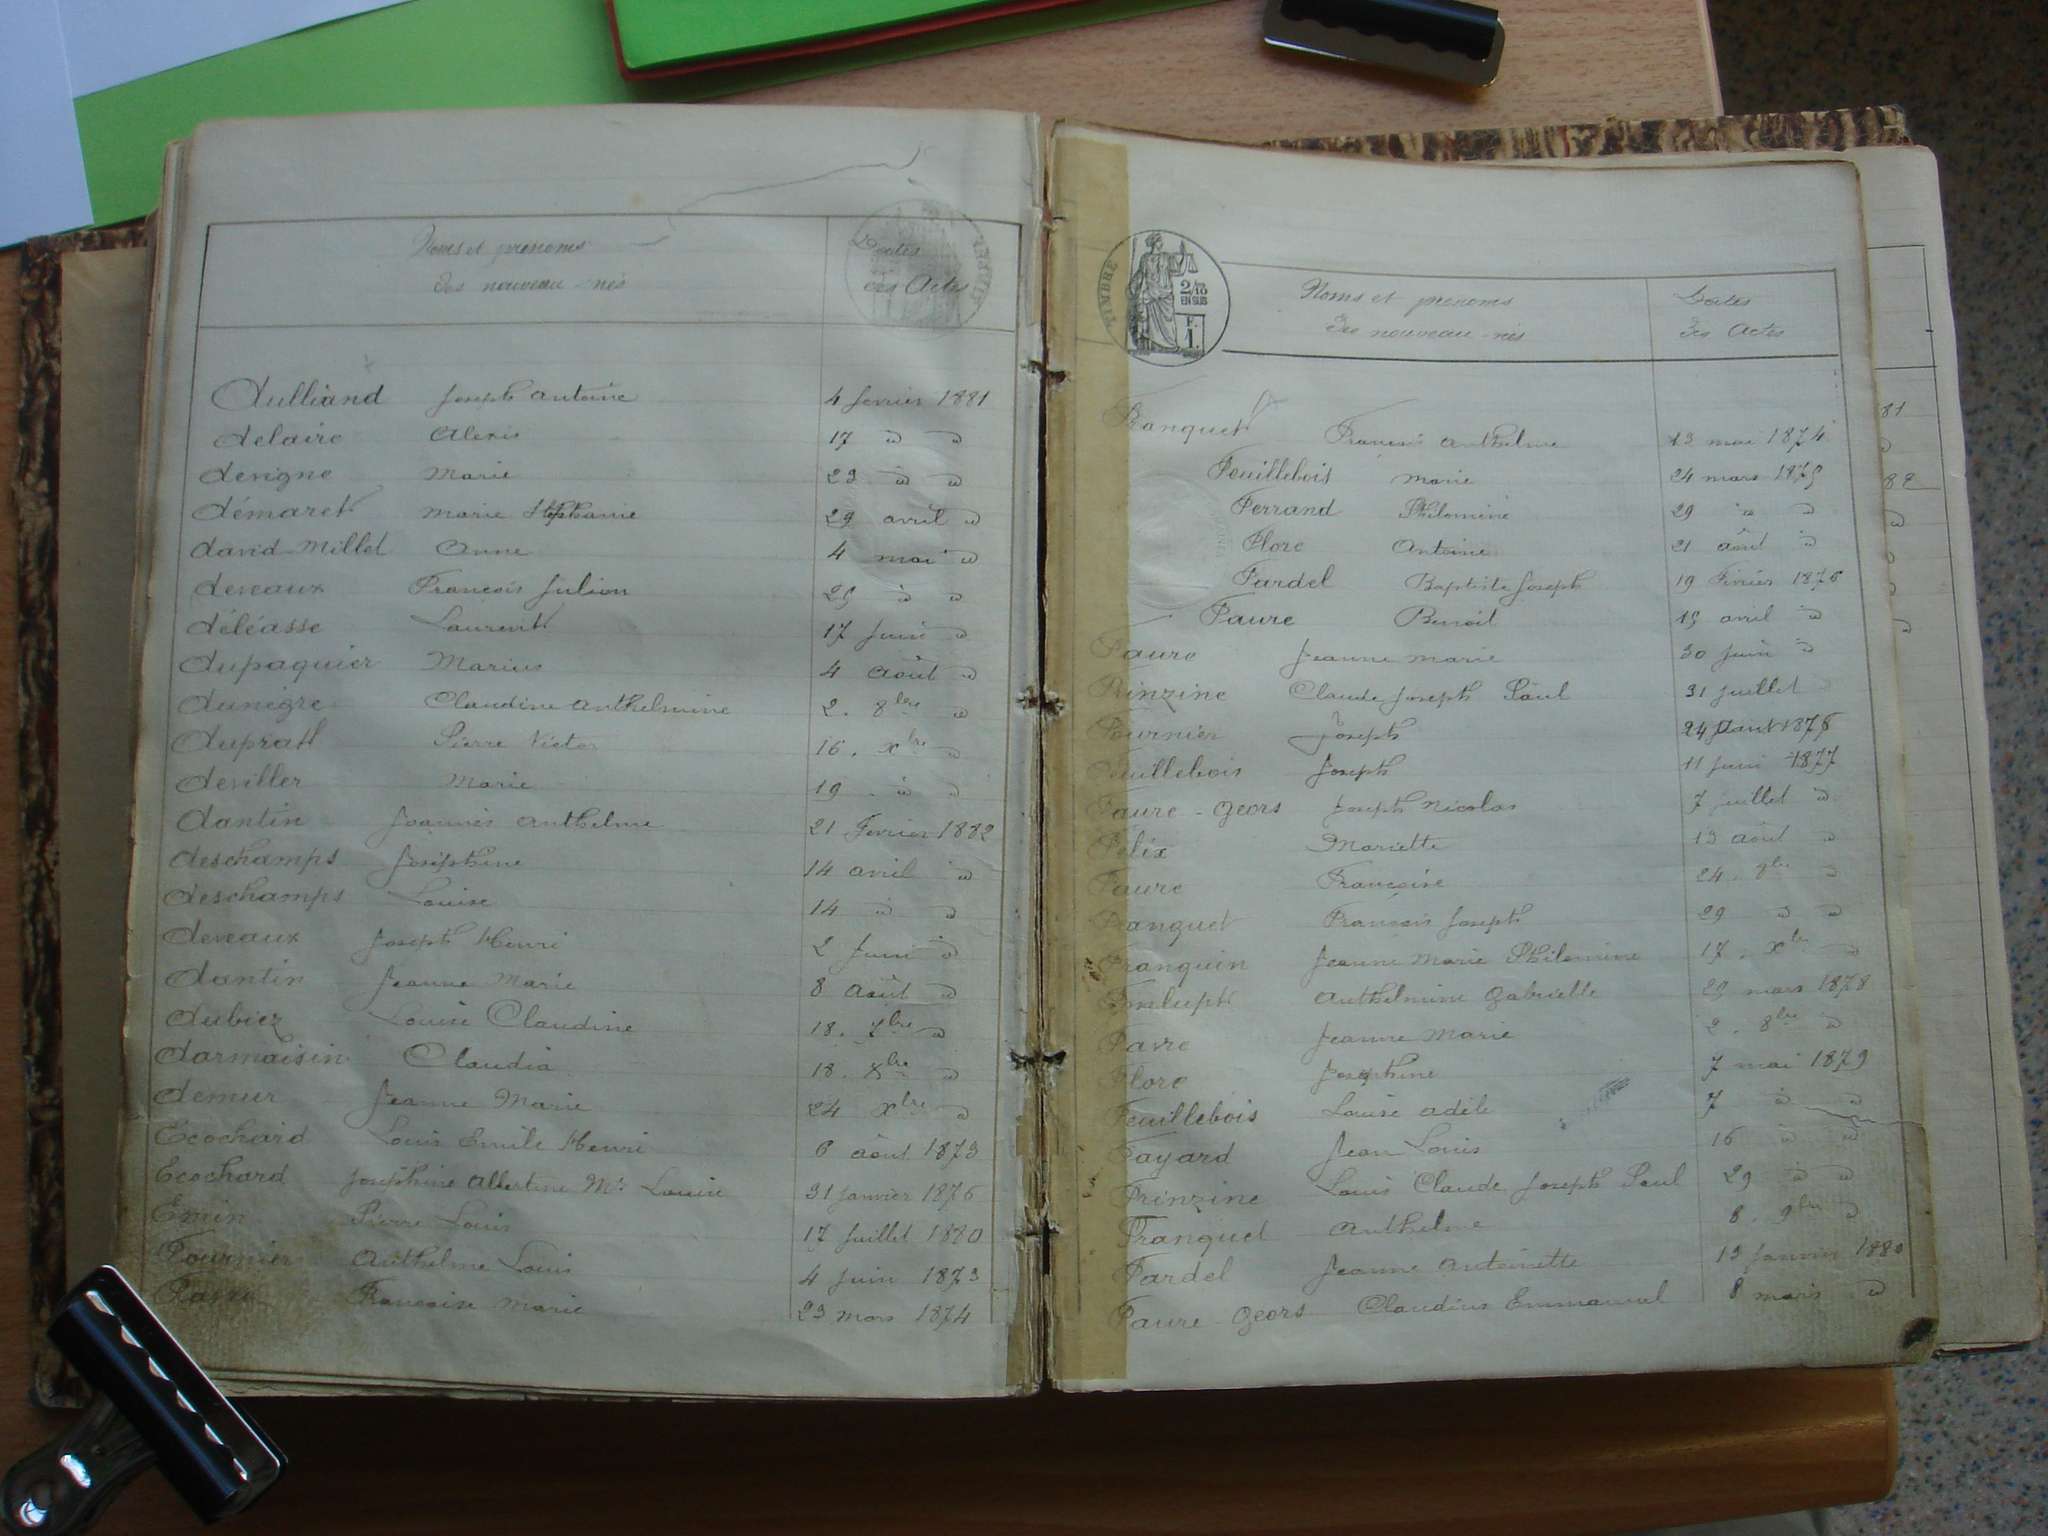 Noms et prenoms
des nouveau-nés
Dates
des Actes
Dulliand Joseph Antoine 4 fevrier 1881
Delaire Alexis 17 d d
Devigne Marie 23 d d
Démaret Marie Stéphanie 29 avril d
David-Millet Anne 4 mai d
Deveaux François Julien 25 d d
Déléasse Laurent 17 Juin d
Dupaquier Marius 4 Août d
Dunégre Claudine Anthelmine 2. 8bre d
Duprat Pierre Victor 16. xbre d
Deviller Marie 19 d d
Dantin Joannès Anthelme 21 Fevrier 1882
Deschamps Joséphine 14 avril d
Deschamps Louise 14 d d
Deveaux Joseph Henri 2 Juin d
Dantin Jeanne Marie 8 Août d
Dubiez Louise Claudine 18. 7bre d
Darmaisin Claudia 18. xbre d
Demur Jeanne Marie 24 xbre d
Ecochard Louis Emile Henri 6 août 1873
Ecochard Joséphine Albertine Mie Louise 31 Janvier 1876
Emin Pierre Louis 17 Juillet 1880
Fournier Anthelme Louis 4 Juin 1873
Françoise Marie 23 mars 1874
TIMBRE
2/10
EN SUS
F.
1.
Noms et prenoms
des nouveau-nés
Dates
des Actes
Franquet François Anthelme 13 mai 1874
Feuillebois Marie 24 mars 1875
Ferrand Philomine 29 d d
Flore Antoine 21 août d
Fardel Baptiste Joseph 19 Février 1876
Faure Benoit 15 avril d
Faure Jeanne Marie 30 Juin d
Frinzine Claude Joseph Paul 31 Juillet
Fournier Joseph 24 Aout 1876
Feuillebois Joseph 11 Juin 1877
Faure-Geors Joseph Nicolas 7 juillet d
Félix Mariette 13 août d
Faure Françoise 24. 9bre d
Franquet François Joseph 29 d d
Franquin Jeanne Marie Philomine 17. xbre d
Anthelmine Gabrielle 29 mars 1878
Favre Jeanne Marie 2. 8bre d
Flore Josephine 7 mai 1879
Feuillebois Louise Adèle 7 d d
Fayard Jean Louis 16 d d
Frinzine Louis Claude Joseph Paul 29 d d
Franquet Anthelme 8. 9bre d
Fardel Jeanne Antoinette 13 Janvier 1880
Faure-Geors Claudius Emmanuel 8 mars d
81
82